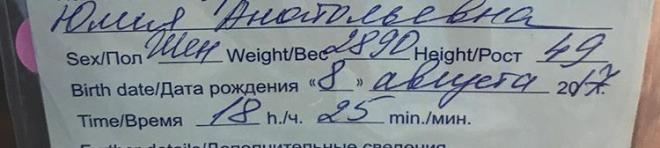 Юлия Анатольевна
Sex/Пол Жен Weight/Вес 2890 Height/Рост 49
Birth date/Дата рождения «8» августа 2017.
Time/Время 18 h./ч. 25 min./мин.
Further details/Дополнительные сведения